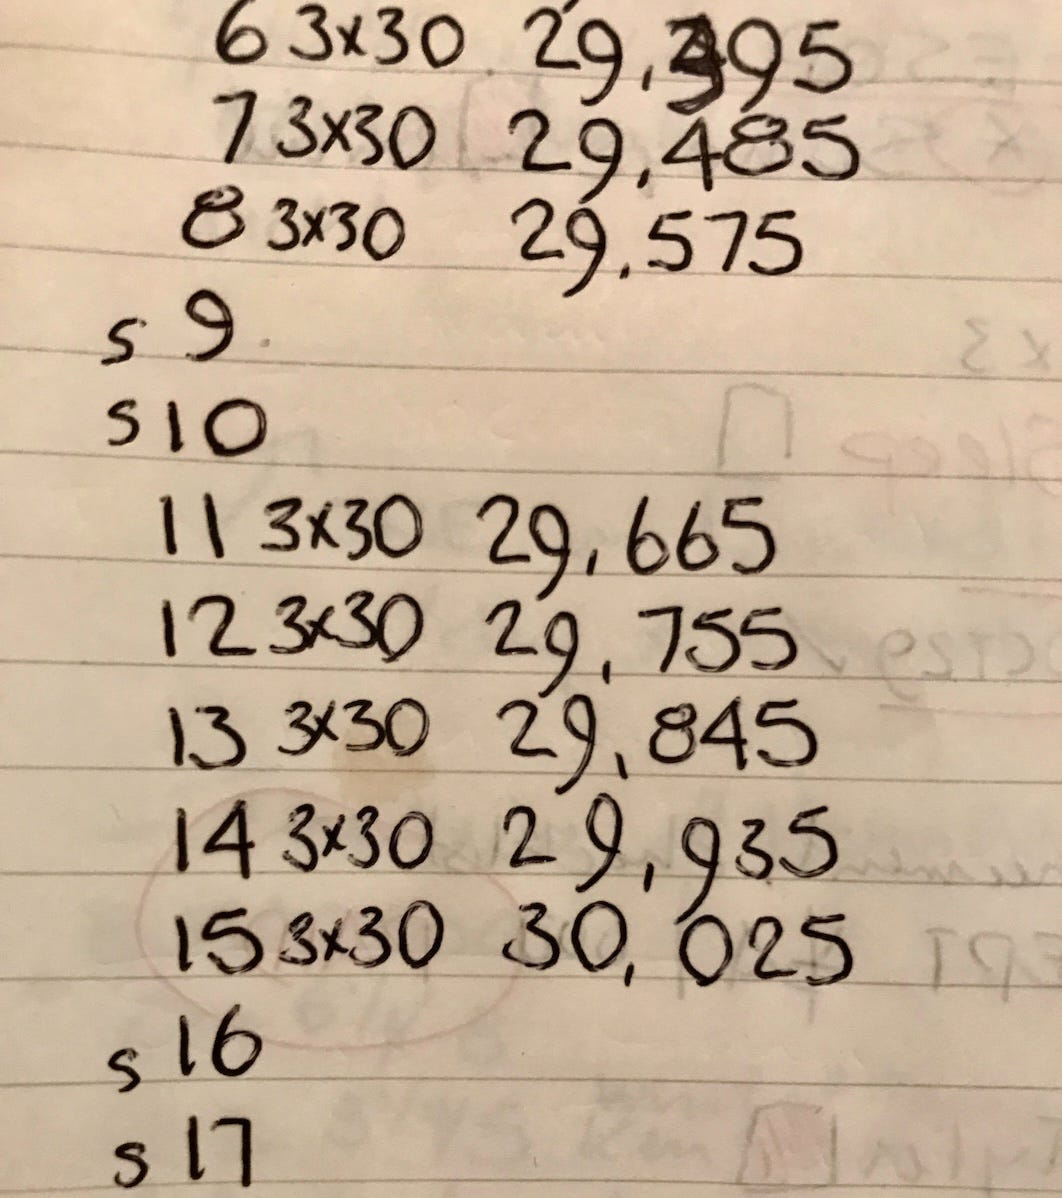 6 3x30 29,395
7 3x30 29,485
8 3x30 29,575
s 9
s 10
11 3x30 29,665
12 3x30 29,755
13 3x30 29,845
14 3x30 29,935
15 3x30 30,025
s 16
s 17